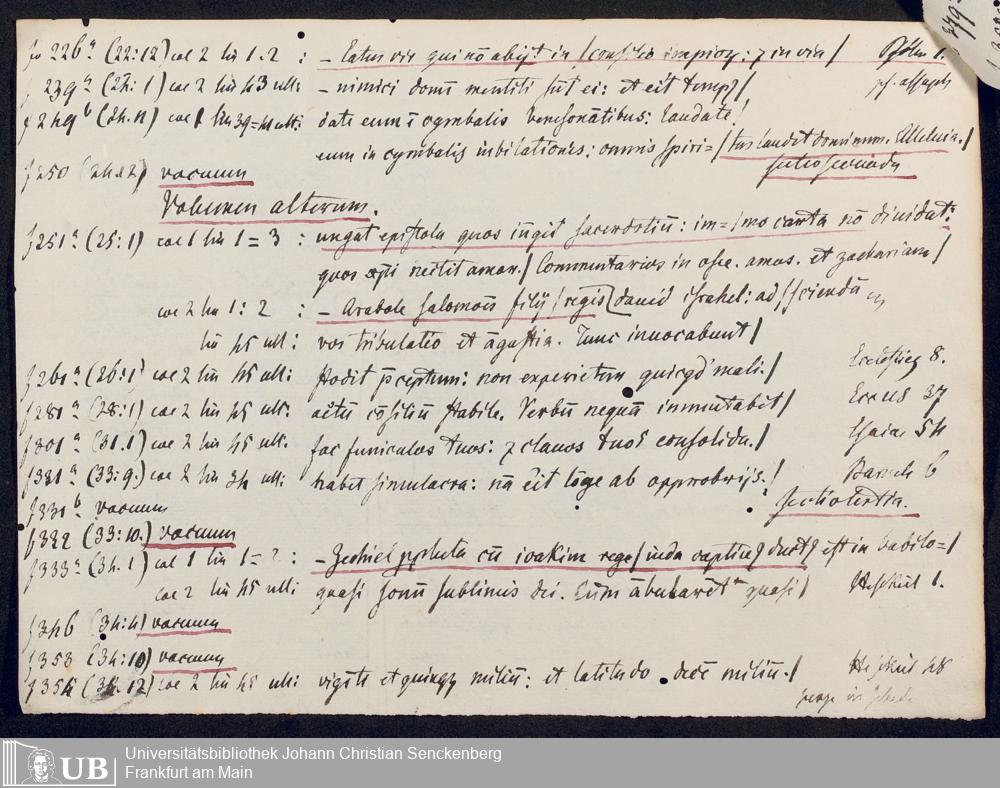 f 226a (22:12) coe 2 lin 1.2 : – Eatus vir qui nō abijt in / consilio impiorz: 7 in via / Psalm 1.
f 239a (24: 1) coe 2 lin 43 ult: – nimici domi mentiti sūt ei: et erit temp9 / ps. assaph
f 249b (24.11) coe 1 lin 39=41 ult: date eum ī cymbalis benesonātibus: laudate!
eum in cymbalis iubilationis: omnis spiri=/ tus laudet dominum. Alleluia. /
f 250 (24.12) vacuum sectio secunda
Volumen alterum.
f 251a (25:1) coe 1 lin 1=3 : ungat epistola quos iūgit sacerdotiū: im=/ mo carta nō diuidat:
quos xpi nectit amor. / Commentarios in osee. amos. et zachariam /
coe 2 lin 1:2 : – Arabole salomōis filij / regis dauid israhel: ad / sciendā
lin 45 ult: vos tribulatio et āgustia. Tunc inuocabunt /
f 261a (26:1) coe 2 lin 45 ult: stodit p̄ceptum: non experietur quicqd' mali. / Ecclesiastes 8.
f 281a (28:1) coe 2 lin 45 ult: actū cōsiliū stabile. Verbū nequā inmutabit / Eccus 37
f 301a (31.1) coe 2 lin 45 ult. fac funiculos tuos: 7 clauos tuos consolida. / Esaiae 54
f 331a (33:9.) coe 2 lin 34 ult: habet simulacra: nā erit lōge ab opprobrijs. / Baruch 6
f 331b vacuum sectio tertia.
f 332 (33:10.) vacuum
f 333a (34.1) coe 1 lin 1=2 : – Zechiel ppheta cū ioakim rege / iuda captiu9 duct9 est in babilo=/
coe 2 lin 45 ult: quasi sonū sublimis dei. Cūm ābularēt quasi / Hesekiel 1.
f 346 (34:4) vacuum
f 353 (34:10) vacuum
f 354 (34.12) coe 2 lin 45 ult: viginti et quinqz miliū: et latitudo decē miliū. / Hesekiel 48
Universitätsbibliothek Johann Christian Senckenberg
Frankfurt am Main
UB